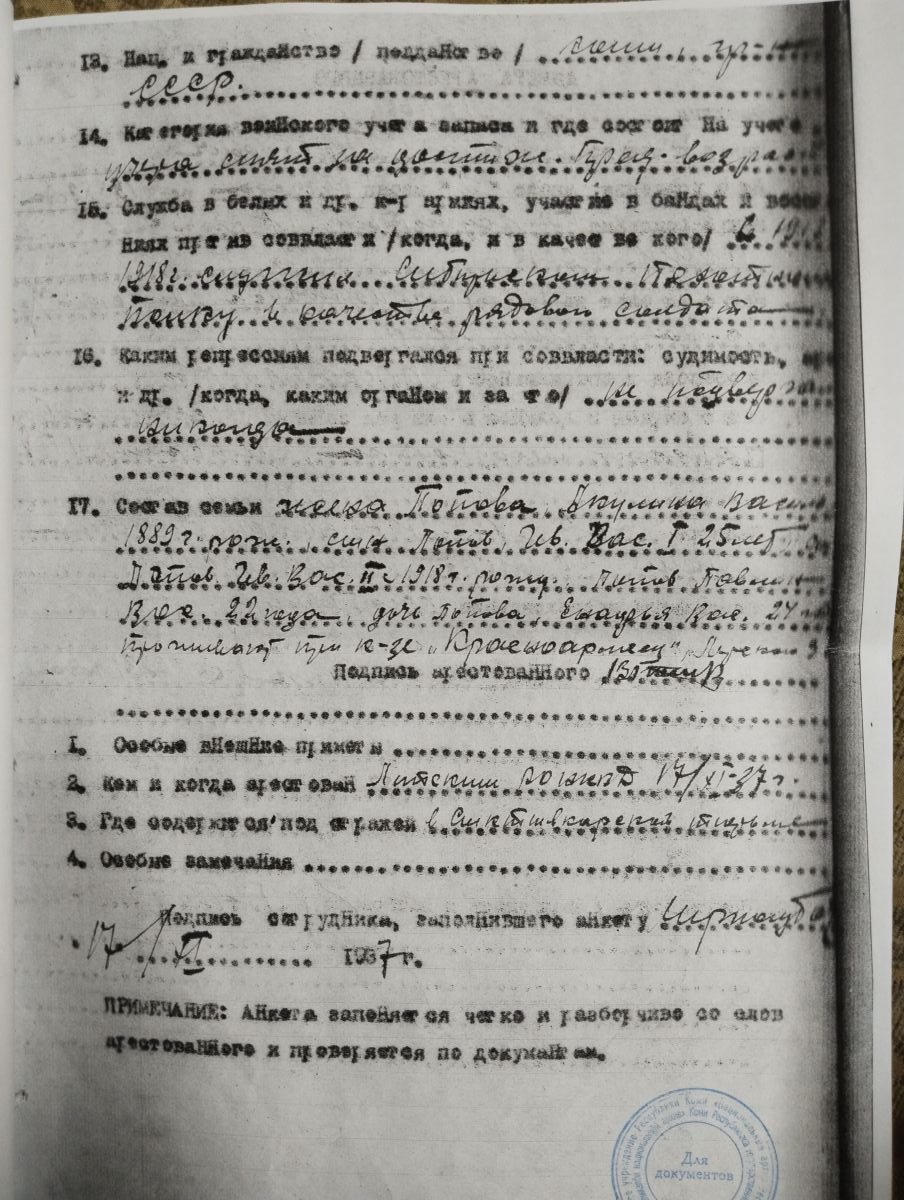 13. Нац. и гражданство / подданство / коми, гр-н
СССР.
14. Категория воинского учета запаса и где состоит на учете
снят по достиж. пред. возра
15. Служба в белых и др. к-р армиях, участие в бандах и восст
ниях против соввласти /когда, и в качестве кого/ С 19
1918 г. служил Сибирском Пехотн
Полку в качестве рядовой солдата
16. Каким репрессиям подвергался при соввласти: судимость,
и др. /когда, каким органом и за что/ не подверг
никогда
17. Состав семьи жена Попова Акулина Вас
1889 г. рож., сын Попов Ив. Вас. I 25 лет
Попов Ив. Вас. II с 1918 г. рожд. Попов Павел
Вас. 22 года, дочь Попова Вас. 24
проживают при к-зе "Красноармеец",
Подпись арестованного
1. Особые внешние приметы
2. Кем и когда арестован Летским РОНКВД 17/XI-37 г.
3. Где содержится под стражей в Сыктывкарской тюрьме
4. Особые замечания
Подпись сотрудника, заполнившего анкету
17/XI 1937 г.
ПРИМЕЧАНИЕ: Анкета заполняется четко и разборчиво со слов
арестованного и проверяется по документам.
Для
документов